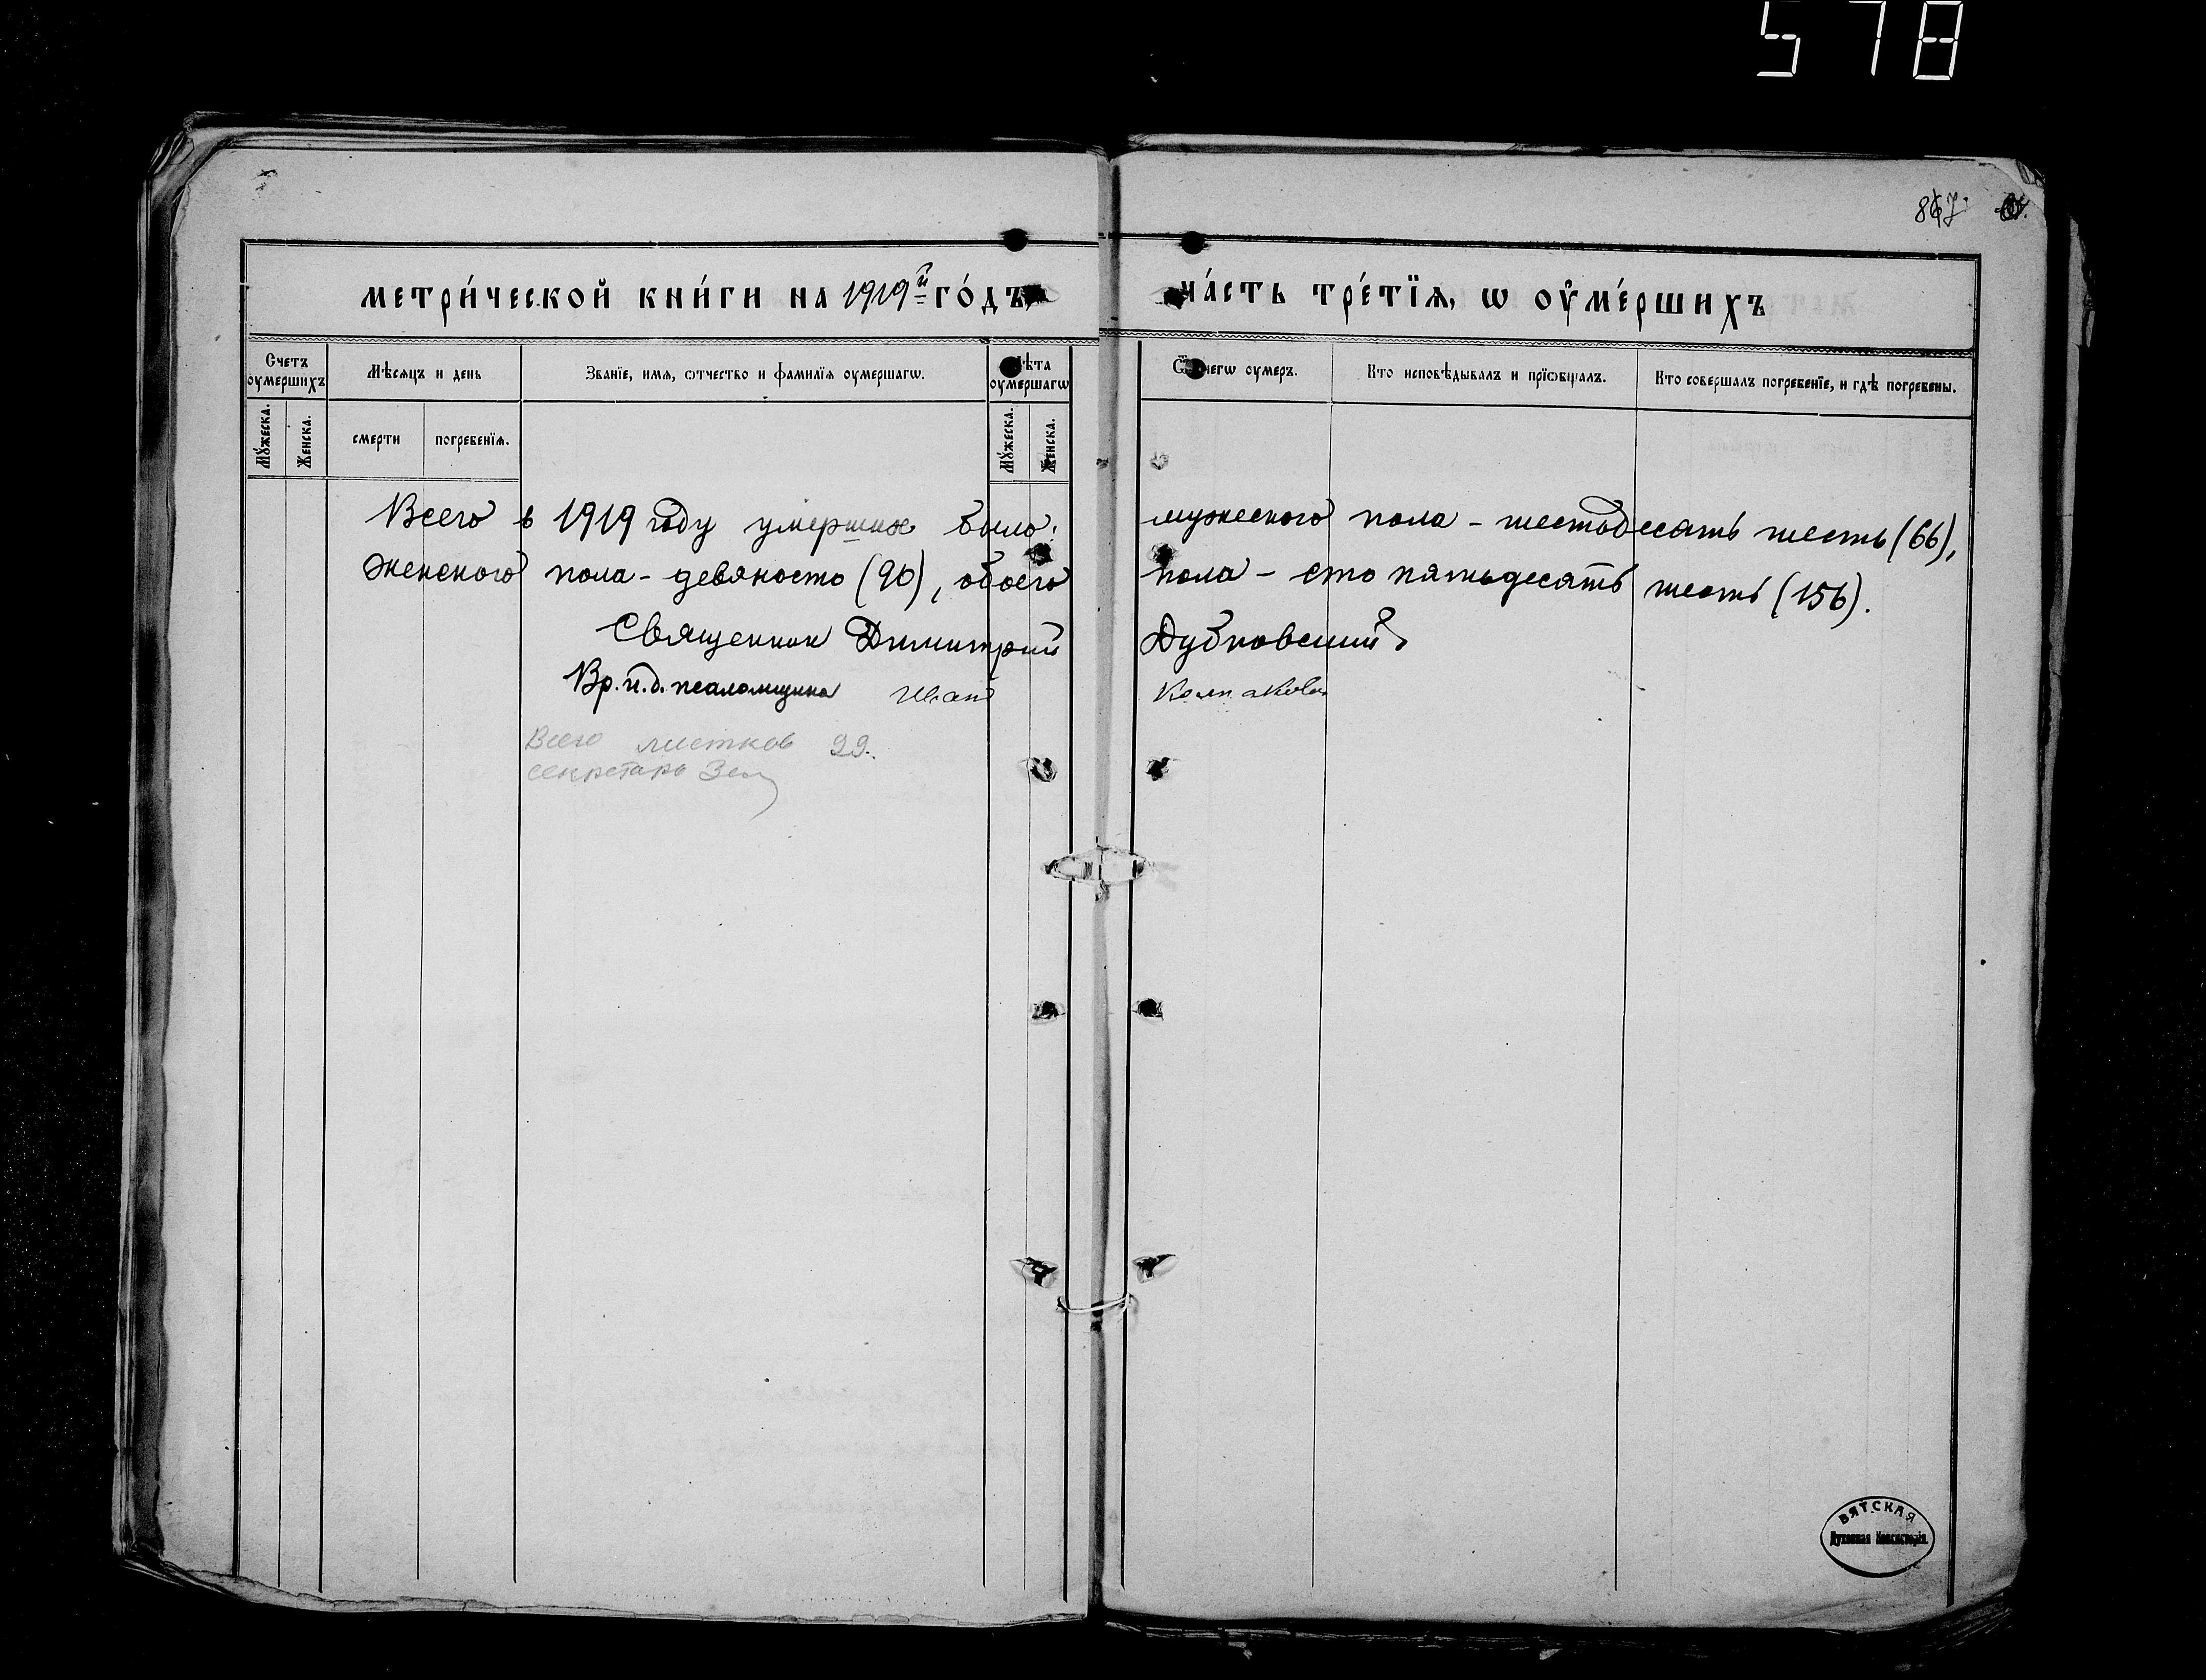 578
867.
метри́ческой кни́ги на 1919й го́дъ
ча́сть тре́тїѧ, ѡ оу҆ме́ршихъ
Счетъ оумершихъ
Мѣсяцъ и день
Званїе, имѧ, ѻтчество и фамилїѧ оумершагѡ.
Лѣта оумершагѡ
Ѿ чегѡ оумеръ.
Кто исповѣдывалъ и прїѡбщалъ.
Кто совершалъ погребенїе, и гдѣ погребены.
Мꙋжеска.
Женска.
смерти
погребенїѧ.
Мꙋжеска.
Женска.
Всего в 1919 году умерших было: мужеского пола - шестьдесять шесть (66),
женского пола - девяносто (90), обоего пола - сто пятьдесять шесть (156).
Священник Димитрий Дубровский
Вр. и. д. псаломщика Иван Колпаков
Всего листков 99.
секретарь
ВЯТСКАЯ
Духовная Консисторія.